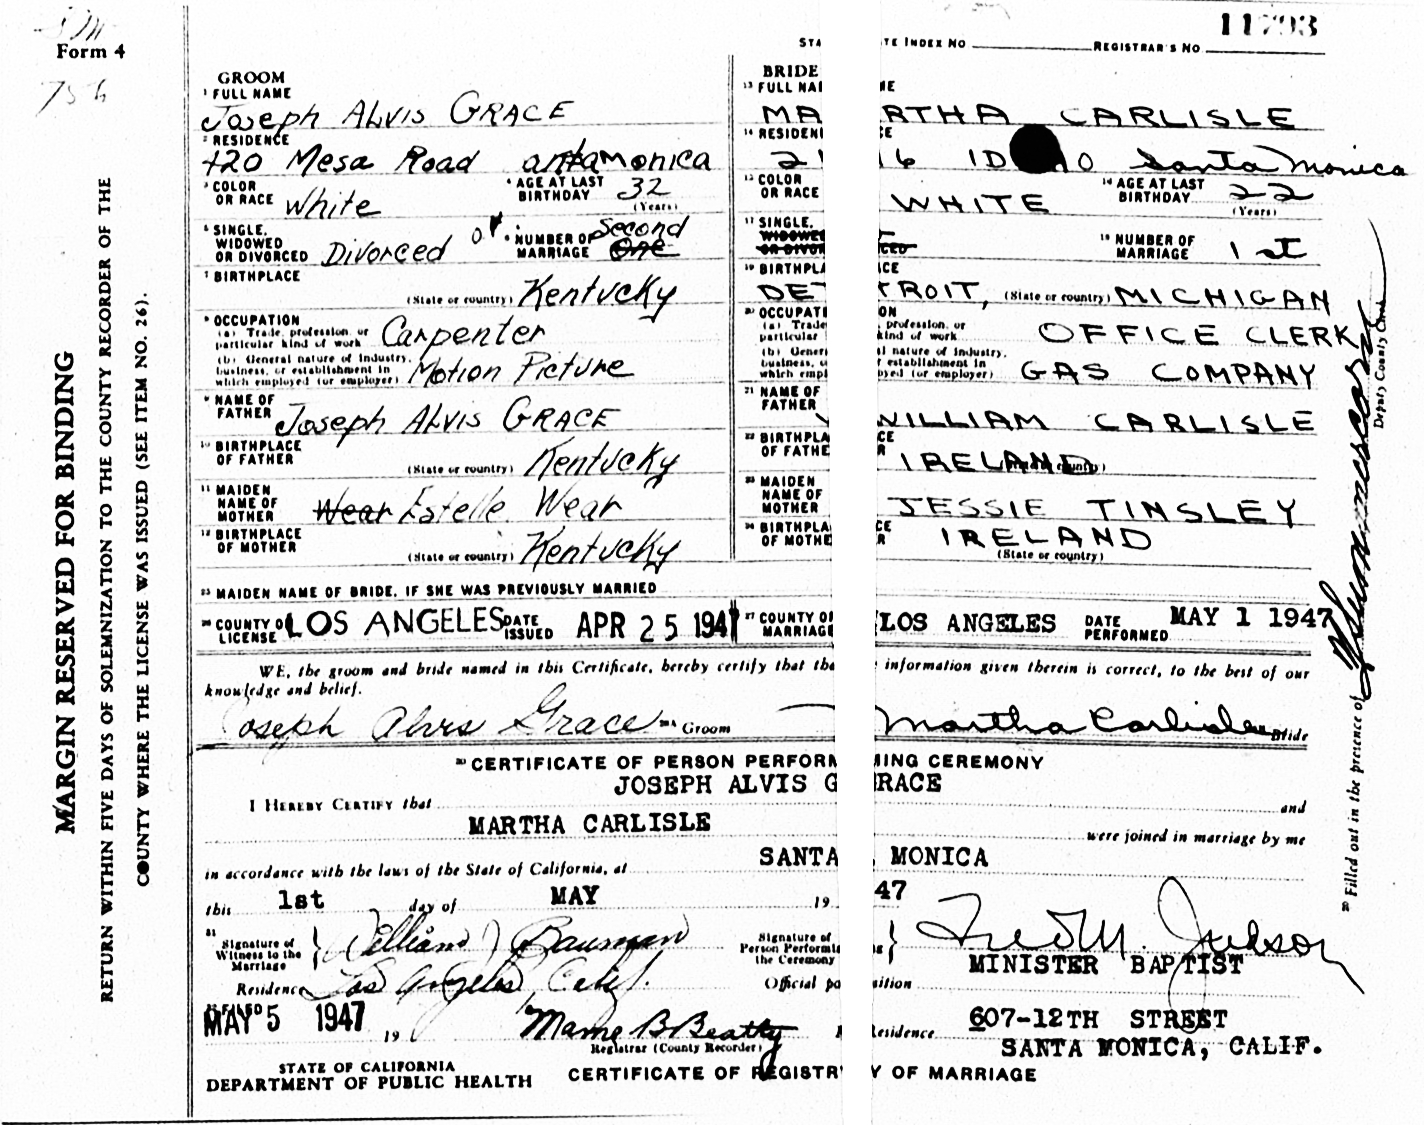 Form 4
11793
STATE INDEX NO
REGISTRAR'S NO.
MARGIN RESERVED FOR BINDING
RETURN WITHIN FIVE DAYS OF SOLEMNIZATION TO THE COUNTY RECORDER OF THE
COUNTY WHERE THE LICENSE WAS ISSUED (SEE ITEM NO. 26).
GROOM
1 FULL NAME
Joseph ALVIS GRACE
2 RESIDENCE
420 Mesa Road antamonica
3 COLOR OR RACE White
4 AGE AT LAST BIRTHDAY 32 (Years)
5 SINGLE, WIDOWED OR DIVORCED Divorced
6 NUMBER OF MARRIAGE Second One
7 BIRTHPLACE
(State or country) Kentucky
8 OCCUPATION
(a) Trade, profession, or particular kind of work Carpenter
(b) General nature of Industry, business, or establishment in which employed (or employer) Motion Picture
9 NAME OF FATHER Joseph ALVIS GRACE
10 BIRTHPLACE OF FATHER (State or country) Kentucky
11 MAIDEN NAME OF MOTHER Wear Estelle Wear
12 BIRTHPLACE OF MOTHER (State or country) Kentucky
BRIDE
13 FULL NAME
MARTHA CARLISLE
14 RESIDENCE
Santa Monica
15 COLOR OR RACE WHITE
16 AGE AT LAST BIRTHDAY 22 (Years)
17 SINGLE, WIDOWED OR DIVORCED
18 NUMBER OF MARRIAGE 1st
19 BIRTHPLACE
DETROIT, (State or country) MICHIGAN
20 OCCUPATION
(a) Trade, profession, or kind of work OFFICE CLERK
(b) General nature of Industry, or establishment in which employed (or employer) GAS COMPANY
21 NAME OF FATHER WILLIAM CARLISLE
22 BIRTHPLACE OF FATHER IRELAND (State or country)
23 MAIDEN NAME OF MOTHER JESSIE TINSLEY
24 BIRTHPLACE OF MOTHER IRELAND
(State or country)
25 MAIDEN NAME OF BRIDE, IF SHE WAS PREVIOUSLY MARRIED
26 COUNTY OF LICENSE LOS ANGELES DATE ISSUED APR 25 1947
27 COUNTY OF MARRIAGE LOS ANGELES DATE PERFORMED MAY 1 1947
WE, the groom and bride named in this Certificate, hereby certify that the information given therein is correct, to the best of our
knowledge and belief.
Joseph Alvis Grace Groom
Martha Carlisle Bride
Filled out in the presence of
Deputy County Clerk
30 CERTIFICATE OF PERSON PERFORMING CEREMONY
JOSEPH ALVIS GRACE
I HEREBY CERTIFY that and
MARTHA CARLISLE were joined in marriage by me
in accordance with the laws of the State of California, at SANTA MONICA
this 1st day of MAY 1947
31 Signature of Witness to the Marriage William J Bauman
Residence Los Angeles, Calif.
Signature of Person Performing the Ceremony Fred M. Judson
Official position MINISTER BAPTIST
Residence 607-12TH STREET
SANTA MONICA, CALIF.
FILED MAY 5 1947 19
Mame B Beatty
Registrar (County Recorder)
STATE OF CALIFORNIA
DEPARTMENT OF PUBLIC HEALTH
CERTIFICATE OF REGISTRY OF MARRIAGE